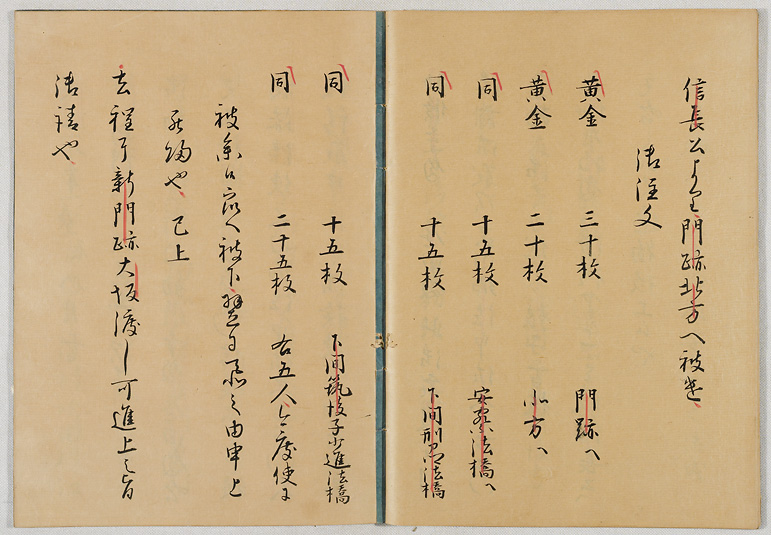 信長公より門跡北方へ被遣、
御注文
黄金 三十枚 門跡へ
黄金 二十枚 北方へ
同 十五枚 安察法橋へ
同 十五枚 下間刑部法橋
同 十五枚 下間筑後子少進法橋
同 二十五枚 右五人今度使に
被参候衆へ被下忝之由申上
罷帰也、已上
去程に新門跡大坂渡し可進上之旨
御請也、